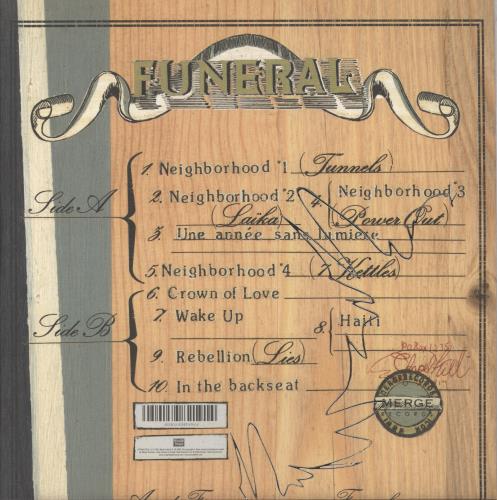 FUNERAL
Side A
1. Neighborhood #1 (Tunnels)
2. Neighborhood #2 (Laika)
3. Une année sans lumiere
4. Neighborhood #3 (Power Out)
5. Neighborhood #4 (7 Kettles)
Side B
6. Crown of Love
7. Wake Up
8. Haiti
9. Rebellion (Lies)
10. In the backseat
MERGE
RECORDS